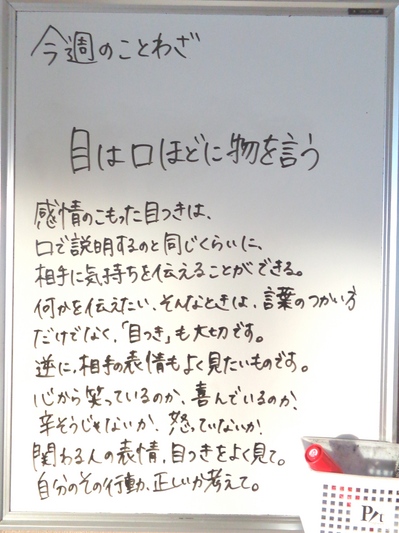 今週のことわざ
目は口ほどに物を言う
感情のこもった目つきは、
口で説明するのと同じくらいに、
相手に気持ちを伝えることができる。
何かを伝えたい、そんなときは、言葉のつかい方
だけでなく、「目つき」も大切です。
逆に、相手の表情もよく見たいものです。
心から笑っているのか、喜んでいるのか、
辛そうじゃないか、怒っていないか、
関わる人の表情、目つきをよく見て。
自分のその行動、正しいか考えて。